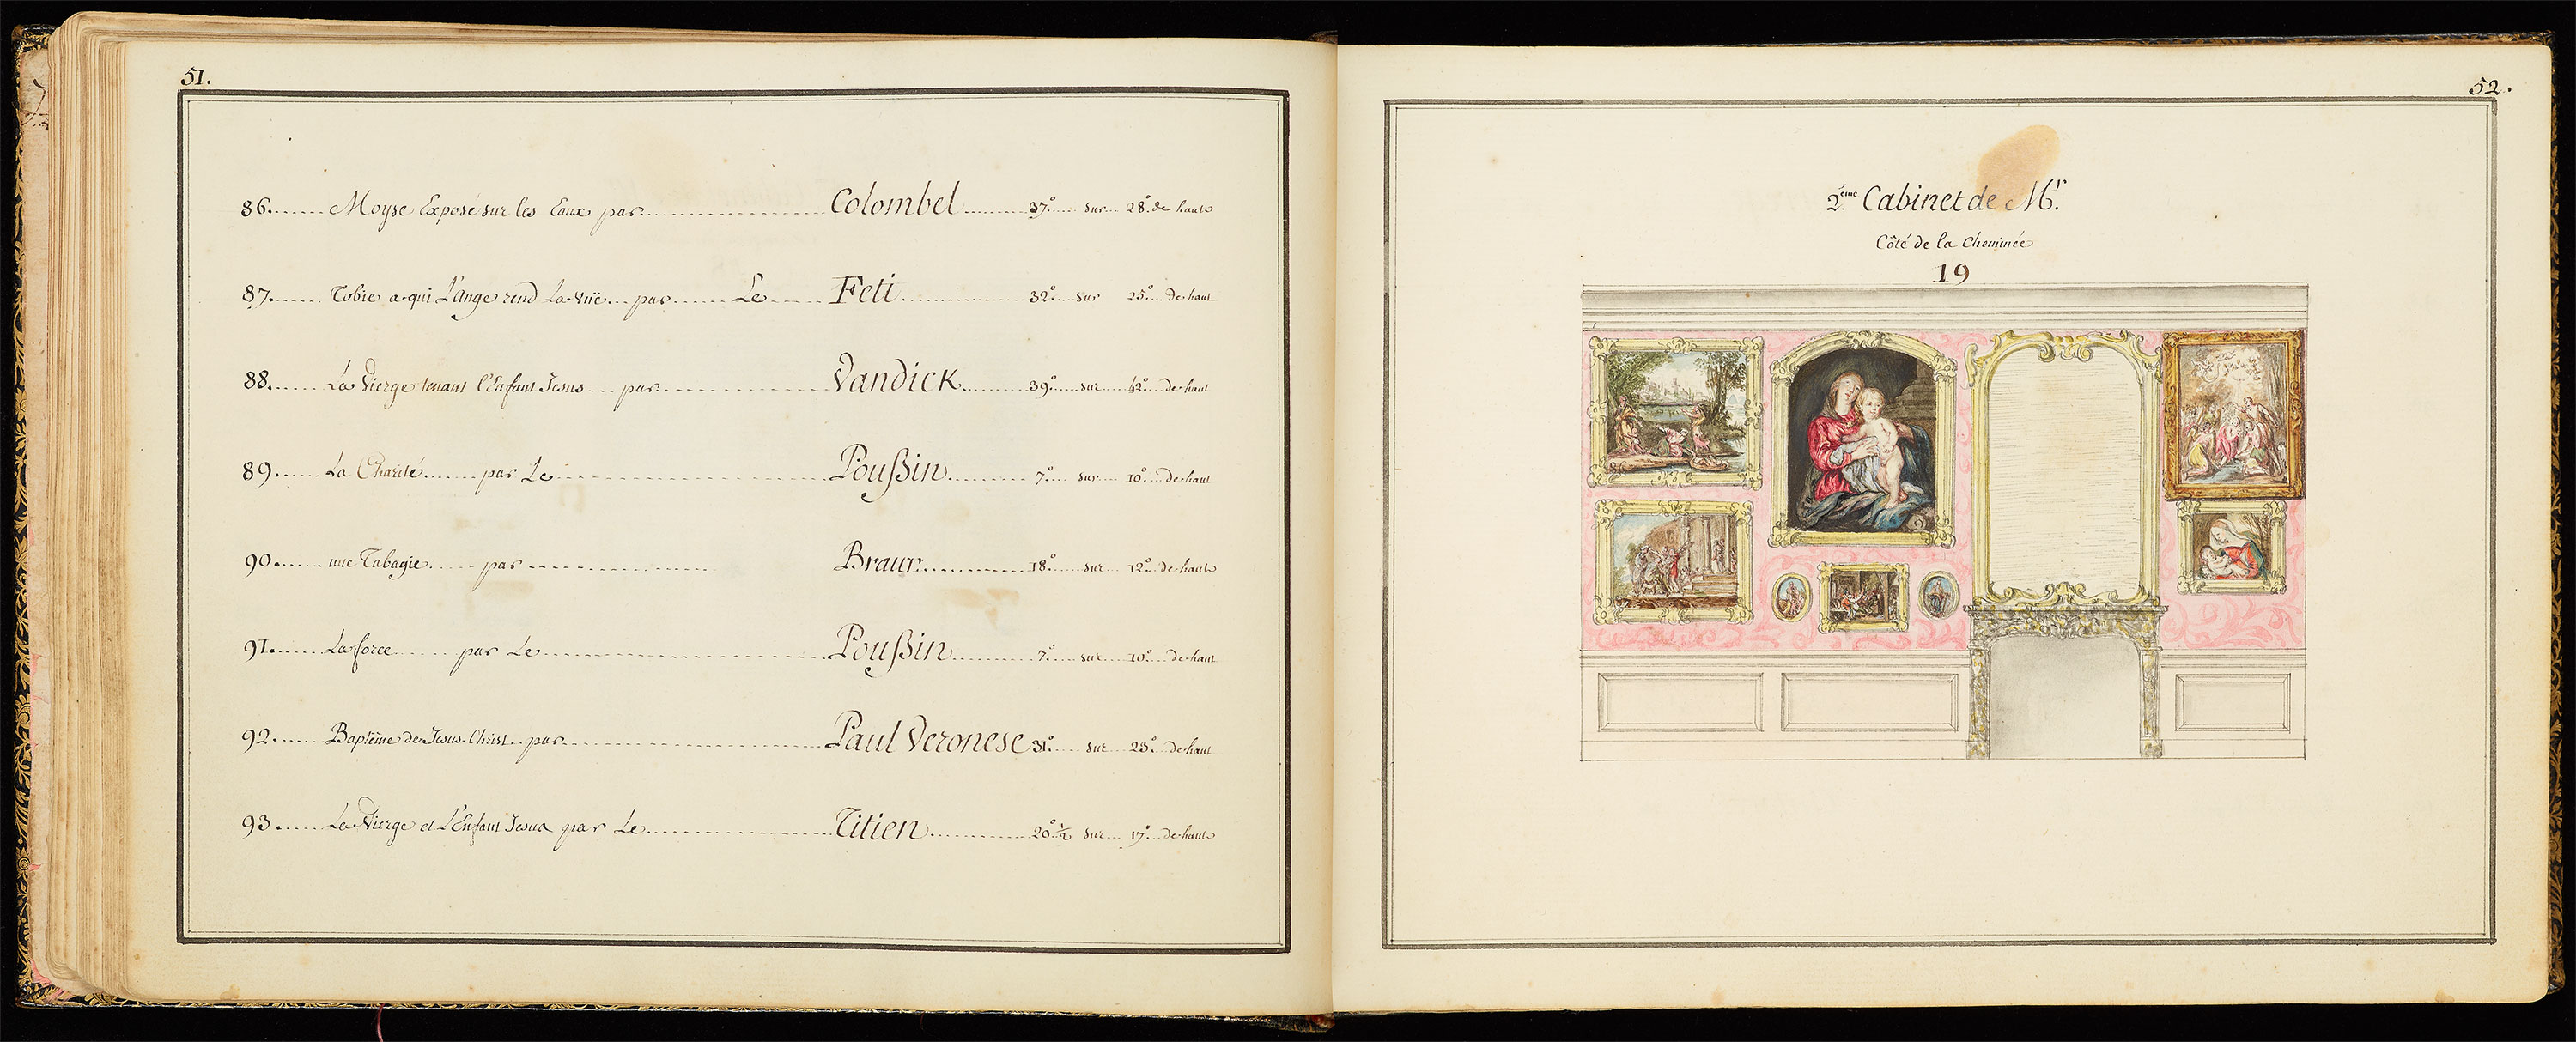 51.
86....... Moyse Exposé sur les Eaux par................ Colombel.......... 37°..... sur... 28° de haut
87....... Tobie a qui L'Ange rend La Vüe... par....... Le..... Feti................ 32°..... sur 25°.... de haut
88....... La Vierge tenant l'Enfant Jesus... par................ Vandick.......... 39°..... sur... 42°... de haut
89....... La Charité....... par Le........................ Poußin.......... 7°..... sur.... 10°... de haut
90....... une Tabagie...... par ---------------- Braur............ 18°..... sur... 12° de haut
91....... La force....... par Le........................ Poußin.......... 7°..... sur.... 10°... de haut
92....... Baptême de Jesus-Christ.. par................ Paul Veronese 31°..... sur... 23°... de haut
93....... La Vierge et L'Enfant Jesus par Le................ Titien............ 20° ½ sur... 17°... de haut
52.
2.eme Cabinet de Mr.
Côté de la Cheminée
19